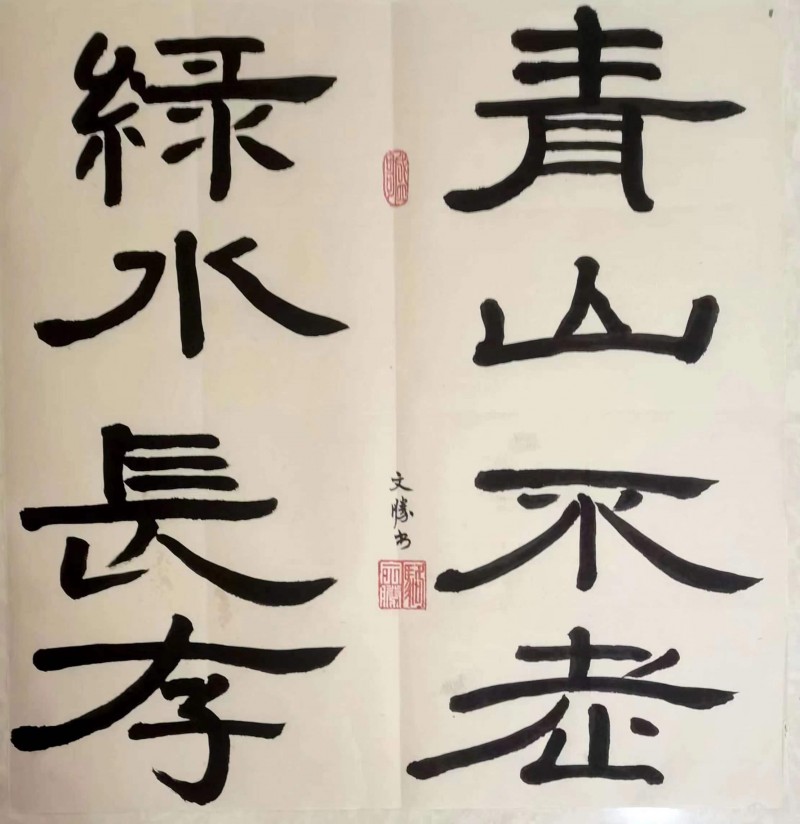 青山不老
綠水長存
文勝书